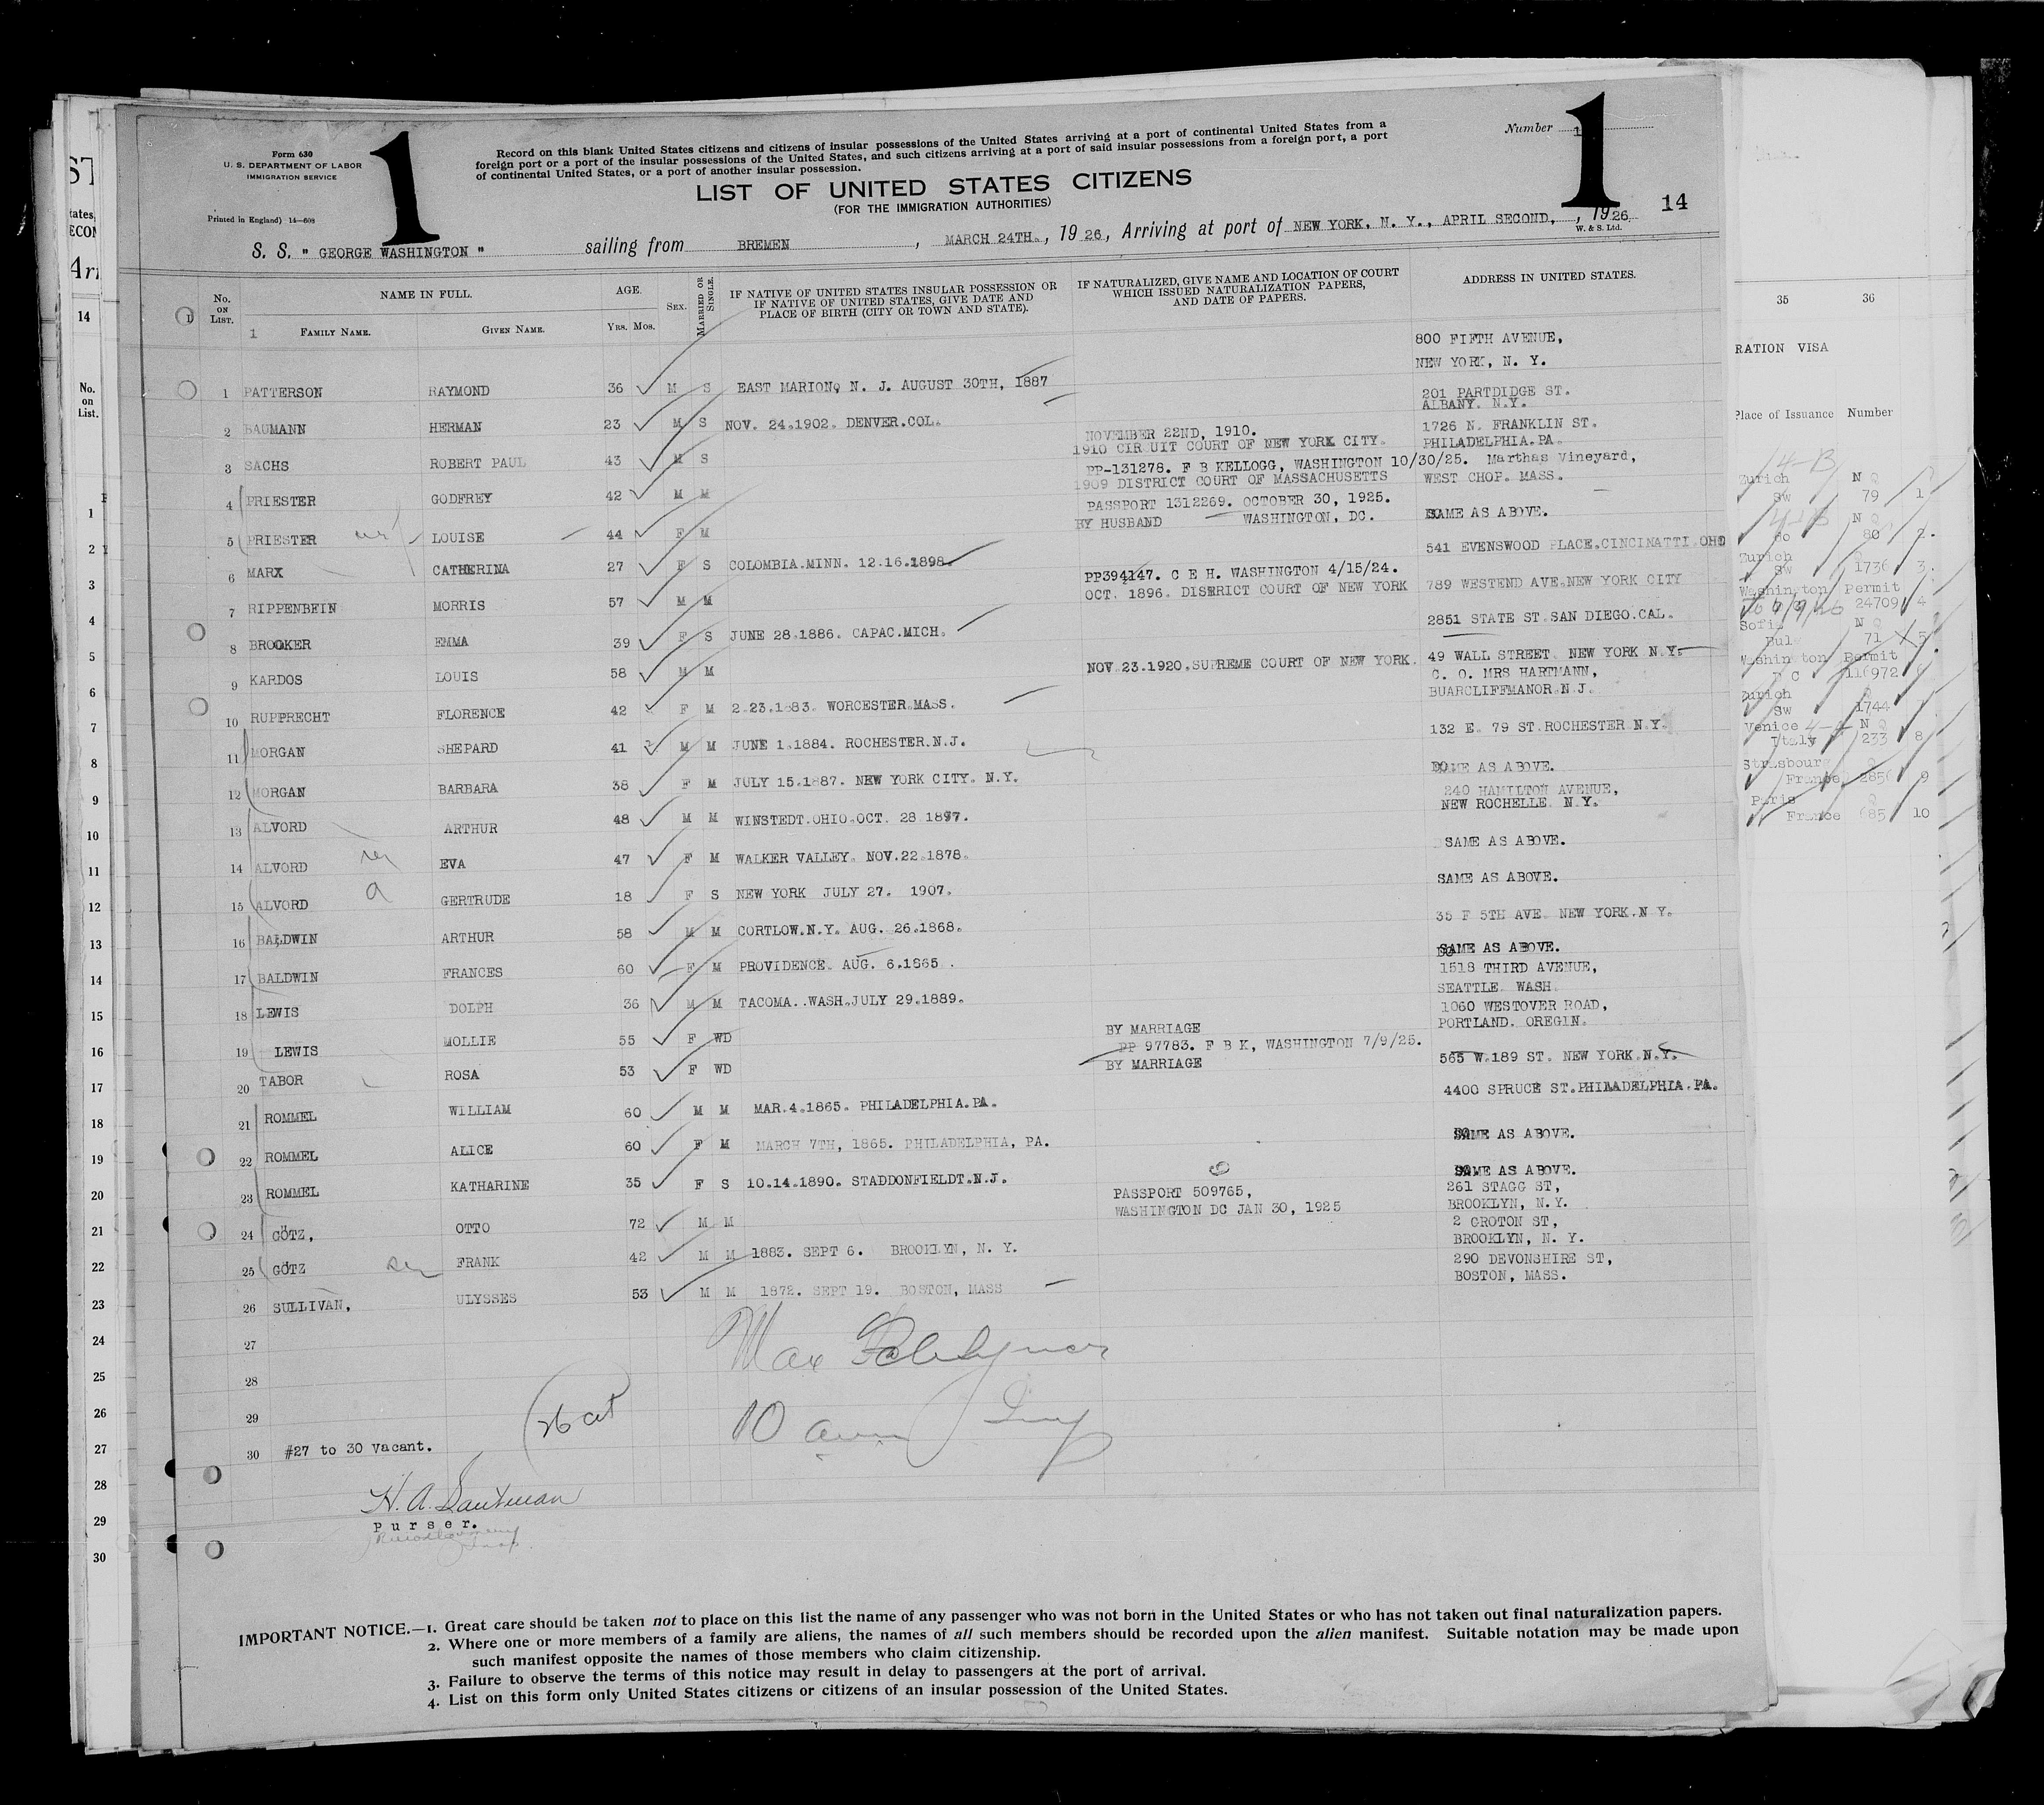 Form 630
U. S. DEPARTMENT OF LABOR
IMMIGRATION SERVICE
Printed in England) 14—608
1
Record on this blank United States citizens and citizens of insular possessions of the United States arriving at a port of continental United States from a
foreign port or a port of the insular possessions of the United States, and such citizens arriving at a port of said insular possessions from a foreign port, a port
of continental United States, or a port of another insular possession.
Number 1
1
14
LIST OF UNITED STATES CITIZENS
(FOR THE IMMIGRATION AUTHORITIES)
S. S. " GEORGE WASHINGTON " sailing from BREMEN , MARCH 24TH., 19 26, Arriving at port of NEW YORK, N. Y., APRIL SECOND, , 19 26
W. & S. Ltd.
No. ON LIST. NAME IN FULL. AGE. SEX. MARRIED OR SINGLE. IF NATIVE OF UNITED STATES INSULAR POSSESSION OR IF NATIVE OF UNITED STATES, GIVE DATE AND PLACE OF BIRTH (CITY OR TOWN AND STATE). IF NATURALIZED, GIVE NAME AND LOCATION OF COURT WHICH ISSUED NATURALIZATION PAPERS, AND DATE OF PAPERS. ADDRESS IN UNITED STATES.
1 FAMILY NAME. GIVEN NAME. YRS. MOS.
800 FIFTH AVENUE,
NEW YORK, N. Y.
1 PATTERSON RAYMOND 36 M S EAST MARION, N. J. AUGUST 30TH, 1887
201 PARTDIDGE ST.
ALBANY. N.Y.
2 BAUMANN HERMAN 23 M S NOV. 24.1902. DENVER.COL.
NOVEMBER 22ND, 1910. 1726 N. FRANKLIN ST.
1910 CIRCUIT COURT OF NEW YORK CITY. PHILADELPHIA.PA.
3 SACHS ROBERT PAUL 43 M S
PP-131278. F B KELLOGG, WASHINGTON 10/30/25. Marthas Vineyard,
1909 DISTRICT COURT OF MASSACHUSETTS WEST CHOP. MASS.
4 PRIESTER GODFREY 42 M M
PASSPORT 1312269. OCTOBER 30, 1925.
BY HUSBAND WASHINGTON, DC. SAME AS ABOVE.
5 PRIESTER LOUISE 44 F M
541 EVENSWOOD PLACE.CINCIMATTI.OHO
6 MARX CATHERINA 27 F S COLOMBIA.MINN. 12.16.1898.
PP394147. C E H. WASHINGTON 4/15/24.
OCT. 1896. DISTRICT COURT OF NEW YORK 789 WESTEND AVE.NEW YORK CITY
7 RIPPENBEIN MORRIS 57 M M
2851 STATE ST.SAN DIEGO.CAL.
8 BROOKER EMMA 39 F S JUNE 28.1886. CAPAC.MICH.
9 KARDOS LOUIS 58 M M NOV.23.1920.SUPREME COURT OF NEW YORK. 49 WALL STREET. NEW YORK N.Y.
C. O. MRS HARTMANN,
BUARCLIFFMANOR.N.J.
10 RUPPRECHT FLORENCE 42 F M 2.23.1883. WORCESTER.MASS.
132 E. 79 ST.ROCHESTER N.Y.
11 MORGAN SHEPARD 41 M M JUNE 1.1884. ROCHESTER.N.J.
SAME AS ABOVE.
12 MORGAN BARBARA 38 F M JULY 15.1887. NEW YORK CITY. N.Y.
240 HAMILTON AVENUE,
NEW ROCHELLE. N.Y.
13 ALVORD ARTHUR 48 M M WINSTEDT.OHIO.OCT. 28.1877.
SAME AS ABOVE.
14 ALVORD EVA 47 F M WALKER VALLEY. NOV.22.1878.
SAME AS ABOVE.
15 ALVORD GERTRUDE 18 F S NEW YORK JULY 27. 1907.
35 F 5TH AVE. NEW YORK.N.Y.
16 BALDWIN ARTHUR 58 M M CORTLOW.N.Y. AUG. 26.1868.
SAME AS ABOVE.
17 BALDWIN FRANCES 60 F M PROVIDENCE. AUG. 6.1865 .
1518 THIRD AVENUE,
SEATTLE. WASH.
18 LEWIS DOLPH 36 M M TACOMA..WASH.JULY 29.1889.
1060 WESTOVER ROAD,
PORTLAND. OREGIN.
19 LEWIS MOLLIE 55 F WD BY MARRIAGE
PP 97783. F B K, WASHINGTON 7/9/25.
20 TABOR ROSA 53 F WD BY MARRIAGE 565 W.189 ST. NEW YORK.N.Y.
4400 SPRUCE ST.PHILADELPHIA.PA.
21 ROMMEL WILLIAM 60 M M MAR.4.1865. PHILADELPHIA.PA.
SAME AS ABOVE.
22 ROMMEL ALICE 60 F M MARCH 7TH, 1865. PHILADELPHIA, PA.
SAME AS ABOVE.
23 ROMMEL KATHARINE 35 F S 10.14.1890. STADDONFIELDT.N.J.
PASSPORT 509765, 261 STAGG ST,
WASHINGTON DC JAN 30, 1925 BROOKLYN, N.Y.
24 GÖTZ, OTTO 72 M M
2 GROTON ST,
BROOKLYN, N. Y.
25 GÖTZ FRANK 42 M M 1883. SEPT 6. BROOKLYN, N. Y.
290 DEVONSHIRE ST,
BOSTON, MASS.
26 SULLIVAN, ULYSSES 53 M M 1872. SEPT 19. BOSTON, MASS
27
28
29
30 #27 to 30 vacant.
Max
10
H. A. Sautman
purser.
IMPORTANT NOTICE.—1. Great care should be taken not to place on this list the name of any passenger who was not born in the United States or who has not taken out final naturalization papers.
2. Where one or more members of a family are aliens, the names of all such members should be recorded upon the alien manifest. Suitable notation may be made upon
such manifest opposite the names of those members who claim citizenship.
3. Failure to observe the terms of this notice may result in delay to passengers at the port of arrival.
4. List on this form only United States citizens or citizens of an insular possession of the United States.
35 36
RATION VISA
Place of Issuance Number
Zurich
Sw 79 1
do 80 2
Zurich
Sw 1736 3
Washington Permit
24709 4
Sofia
Bul 71 5
Washington Permit
D C 116972 6
Zurich
Sw 1744
Venice
Italy 233 8
Strasbourg
France 2856 9
Paris
France 685 10
14
No.
on
List.
1
2
3
4
5
6
7
8
9
10
11
12
13
14
15
16
17
18
19
20
21
22
23
24
25
26
27
28
29
30